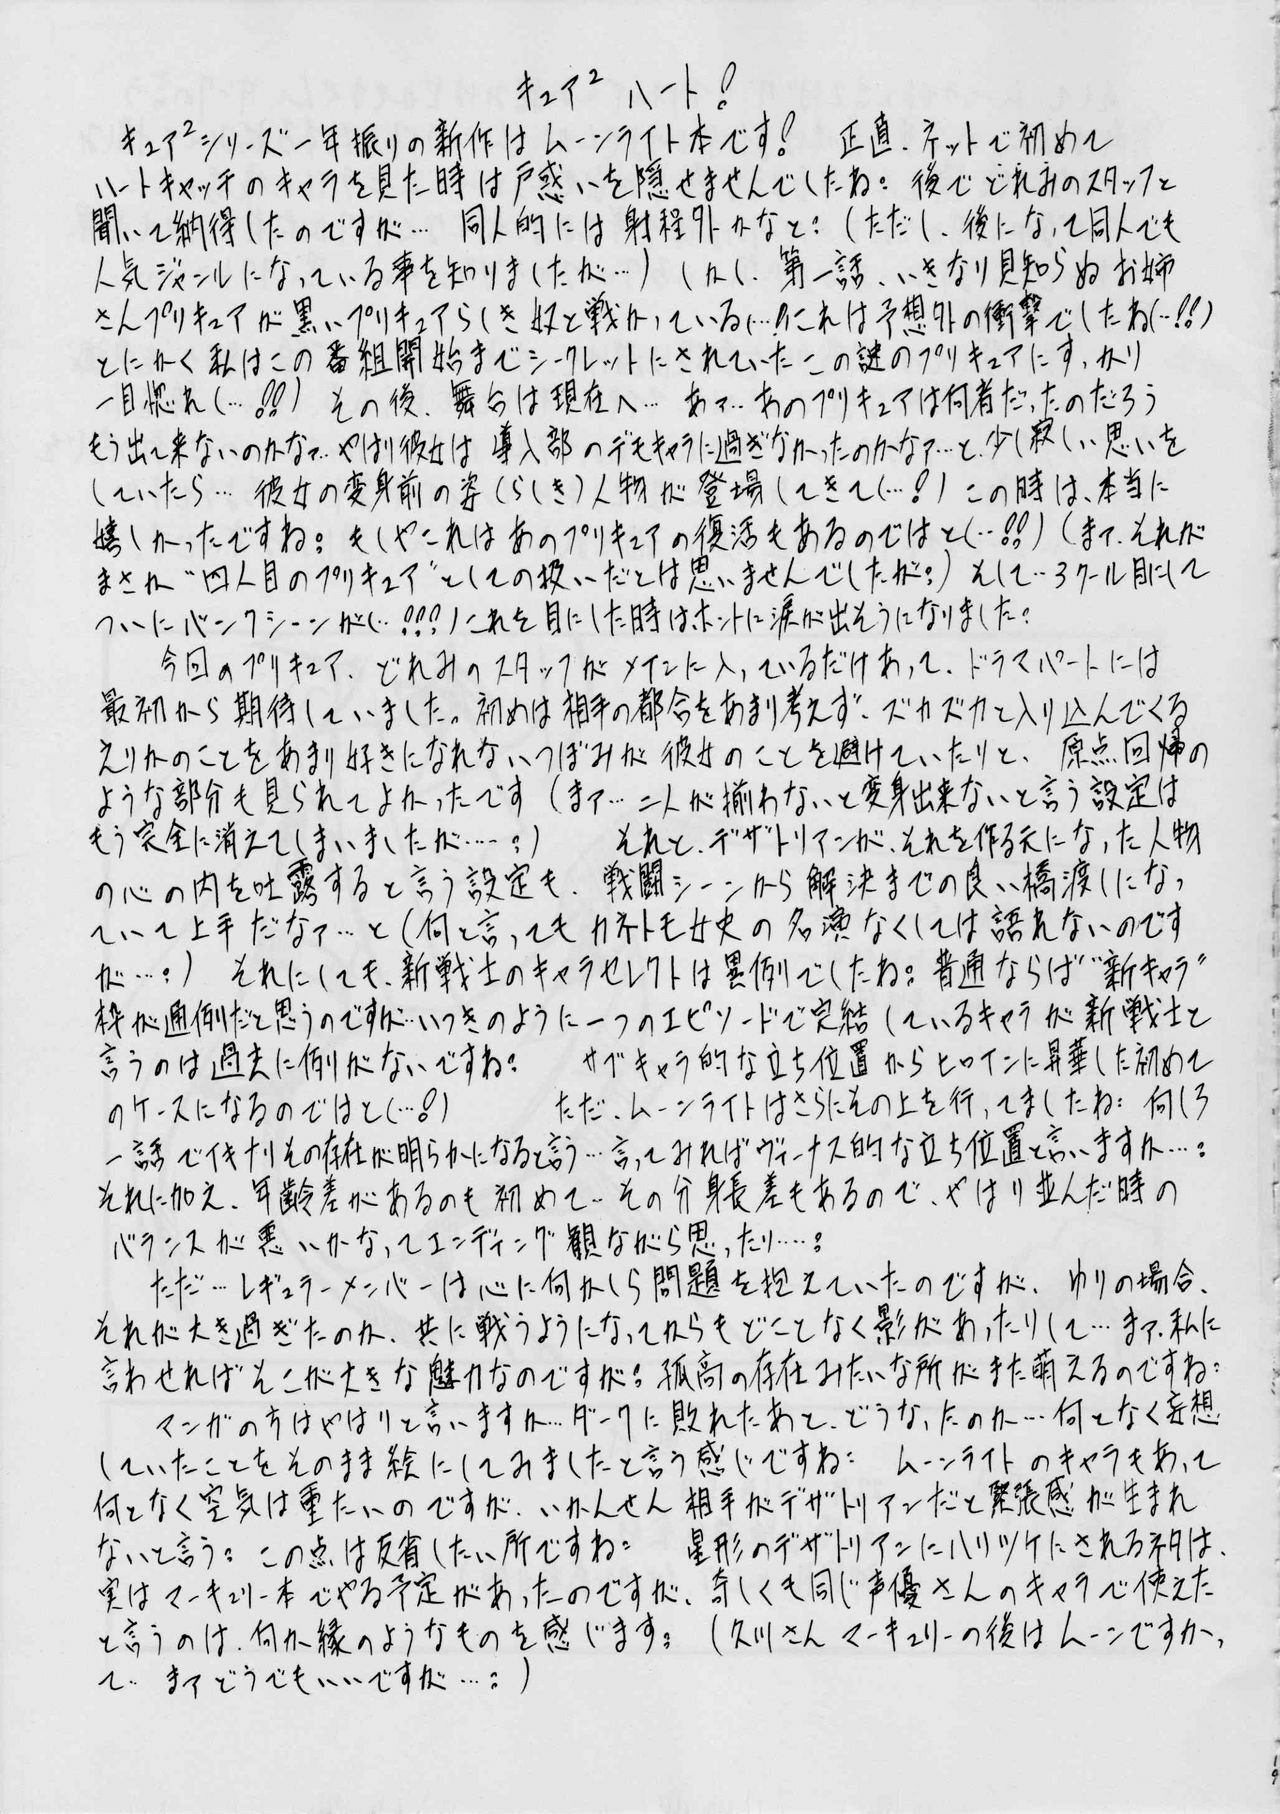 キュア² ハート!
キュア²シリーズ一年振りの新作はムーンライト本です! 正直、ネットで初めて
ハートキャッチのキャラを見た時は戸惑いを隠せませんでしたね: 後でどれみのスタッフと
聞いて納得したのですが… 同人的には射程外かなと: (ただし、後になって同人でも
人気ジャンルになっている事を知りましたが…) しかし、第一話、いきなり見知らぬお姉
さんプリキュアが黒いプリキュアらしき奴と戦かっている(…!!これは予想外の衝撃でしたね(…!!)
とにかく私はこの番組開始までシークレットにされていたこの謎のプリキュアにすっかり
一目惚れ(…!!) その後、舞台は現在へ… あァ…あのプリキュアは何者だったのだろう
もう出て来ないのかなァ…やはり彼女は導入部のデモキャラに過ぎなかったのかなァ…と、少し寂しい思いを
していたら… 彼女の変身前の姿(らしき)人物が登場してきて(…!) この時は、本当に
嬉しかったですね: もしやこれはあのプリキュアの復活もあるのではと(…!!) (まァ、それが
まさか“四人目のプリキュア”としての扱いだとは思いませんでしたが:) そして…3クール目にして
ついにバンクシーンが(…!!!)これを目にした時は、ホントに涙が出そうになりました:
今回のプリキュア、どれみのスタッフがメインに入っているだけあって、ドラマパートには
最初から期待していました。初めは相手の都合をあまり考えず、ズカズカと入り込んでくる
えりかのことをあまり好きになれないつぼみが彼女のことを避けていたりと、原点回帰の
ような部分も見られてよかったです(まァ…二人が揃わないと変身出来ないと言う設定は
もう完全に消えてしまいましたが……:) それと、デザトリアンが、それを作る元になった人物
の心の内を吐露すると言う設定も、戦闘シーンから解決までの良い橋渡しになっ
ていて上手だなァ…と(何と言ってもカネトモ女史の名演なくしては語れないのです
が…:) それにしても、新戦士のキャラセレクトは異例でしたね: 普通ならば“新キャラ”
枠が通例だと思うのですが…いつきのように一つのエピソードで完結しているキャラが新戦士と
言うのは過去に例がないですね: サブキャラ的な立ち位置からヒロインに昇華した初めて
のケースになるのではと(…!) ただ、ムーンライトはさらにその上を行ってましたね: 何しろ
一話でイキナリその存在が明らかになると言う…言ってみればヴィーナス的な立ち位置と言いますか…:
それに加え、年齢差があるのも初めて…その分身長差もあるので、やはり並んだ時の
バランスが悪いかなってエンディング観ながら思ったり……:
ただ…レギュラーメンバーは心に何かしら問題を抱えていたのですが、ゆりの場合、
それが大き過ぎたのか、共に戦うようになってからもどことなく影があったりして…まァ、私に
言わせればそこが大きな魅力なのですが: 孤高の存在みたいな所がまた萌えるのですね:
マンガの方はやはりと言いますか…ダークに敗れたあと、どうなったのか…何となく妄想
していたことをそのまま絵にしてみましたと言う感じですね: ムーンライトのキャラもあって
何となく空気は重たいのですが、いかんせん相手がデザトリアンだと緊張感が生まれ
ないと言う: この点は反省したい所ですね: 星形のデザトリアンにハリツケにされるネタは、
実はマーキュリー本でやる予定があったのですが、奇しくも同じ声優さんのキャラで使えた
と言うのは、何か縁のようなものを感じます: (久川さんマーキュリーの後はムーンですかっ
て… まァどうでもいいですが…:)